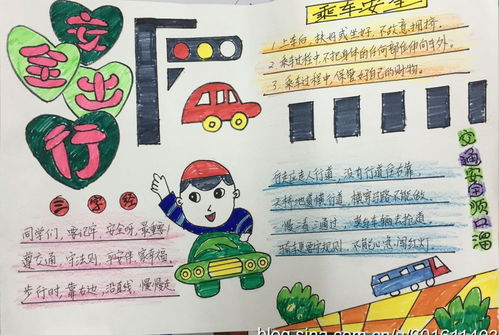 安全出行
三字经
同学们，要记牢，安全呀，最重要！
尊交通，守法则，平安伴，家幸福。
步行时，靠右边，沿直线，慢慢走。
乘车安全
1.上车后，扶好或坐好，不故意拥挤。
2.乘车过程中，不把身体的任何部位伸向车外。
3.乘车过程中，保管好自己的财物。
交通安全顺口溜
行走应走人行道，没有行道往右靠
天桥地道横行道，横穿马路不能做
一慢二看三通过，莫与车辆去抢道
骑车更要守规则，不能心急闯红灯
blog.sina.com.cn/u/601611402